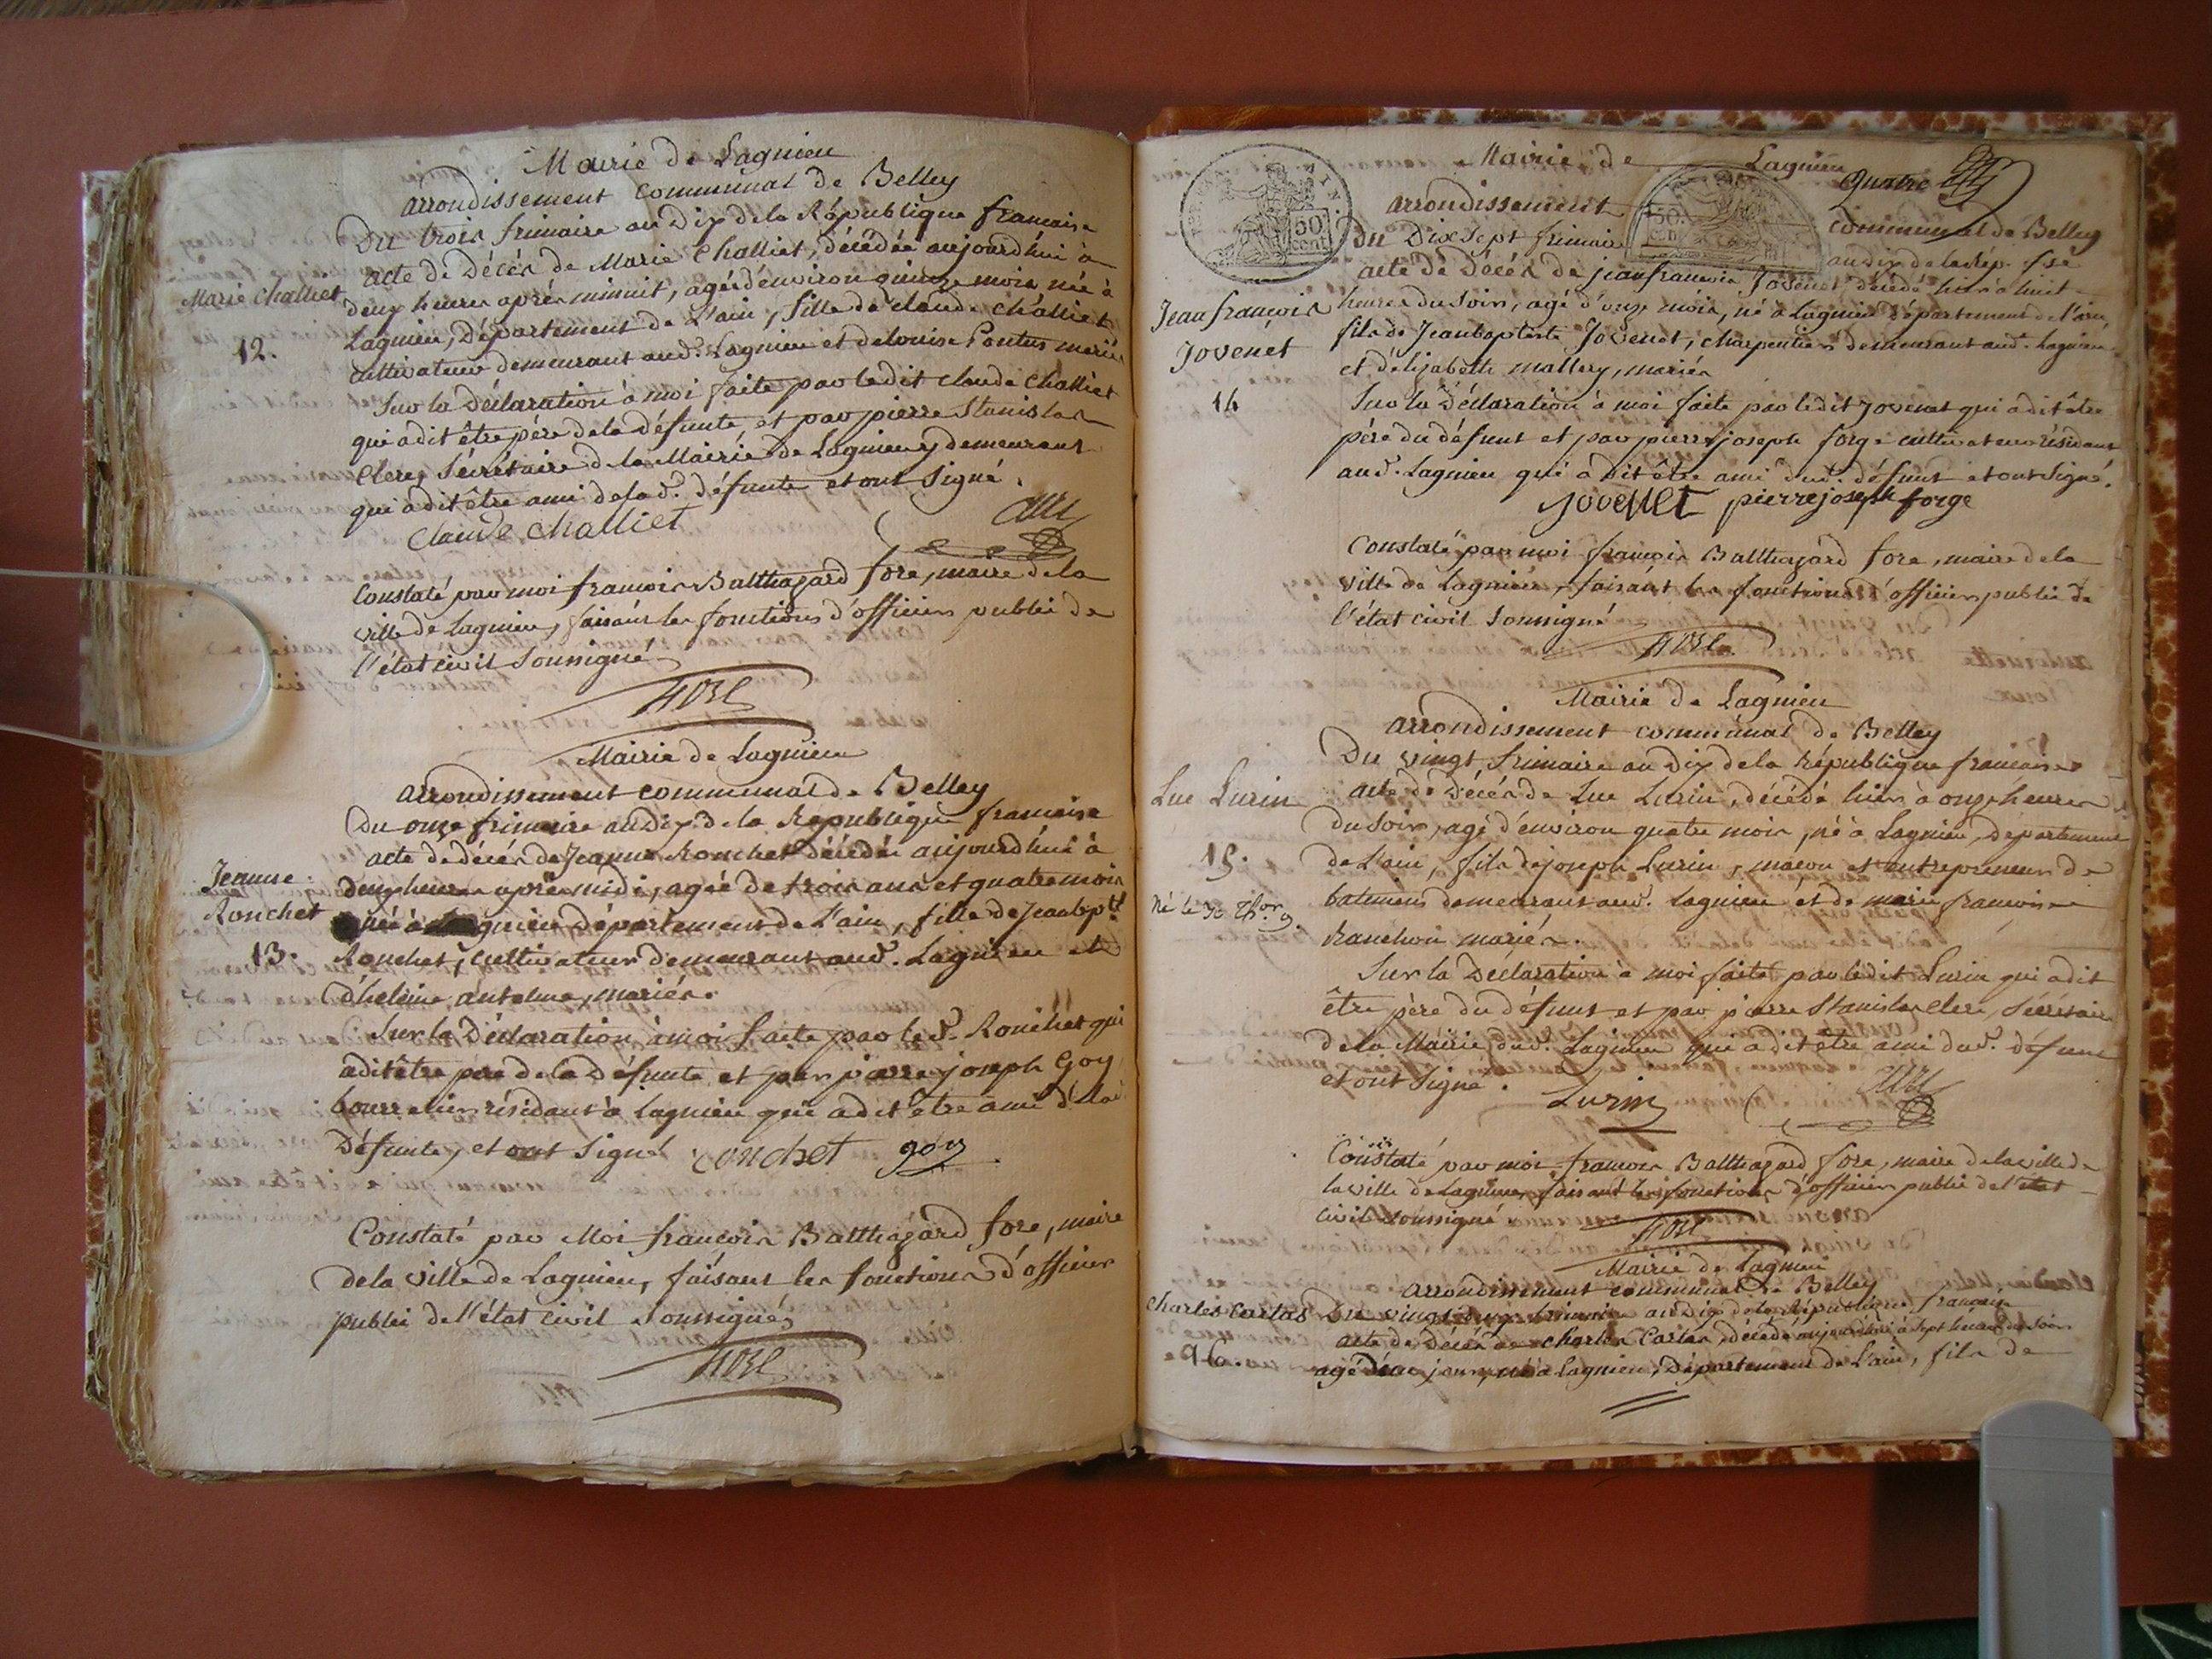 Mairie de Lagnieu
arrondissement communal de Belley
Du trois frimaire an Dix de la République francaise
acte de Décés de Marie Challiet, décédée aujourd'hui à
deux heures aprés minuit, agée d'environ quinze mois, né à
Lagnieu, Département de L'ain, fille de claude challiet
cultivateur demeurant aud. Lagnieu et de Louise Pontus mariés
Marie Challiet
12.
Sur la Déclaration à moi faite par ledit claude challiet
qui a dit être pére dela défunte, et par pierre Stanislas
Clerc, Sécrétaire de la Mairie de Lagnieu y demeurant
qui a dit être ami de lad. défunte et ont Signé.
Claude challiet
Constaté par moi francois Balthazard fore, maire dela
ville de Lagnieu, faisant les fonctions d'officier public de
l'état civil Soussigné
fore
Mairie de Lagnieu
arrondissement communal de Belley
Du onze frimaire an Dix de la République francaise
acte de décés de Jeanne Ronchet décédée aujourd'hui à
deux heures aprés midi, agée de trois ans et quatre mois
née à Lagnieu département de L'ain, fille de Jean bpte
Ronchet, cultivateur demeurant aud. Lagnieu et
d'heléine antelme, mariés.
Jeanne
Ronchet
13.
Sur la Déclaration à moi faite par led. Ronchet qui
a dit être pere de la défunte et par pierre joseph Goy
bourrelier résidant à Lagnieu qui a dit être ami de la d
Défunte, et ont Signé ronchet goy
Constaté par Moi francois Balthazard fore, maire
de la ville de Lagnieu, faisant les fonctions d'officier
public de l'état civil Soussigné
fore
Mairie de Lagnieu
Quatre
arrondissement communal de Belley
50 cent
Du Dix Sept frimaire an dix de la Rép. fse
acte de décés de jean francois Jovenet, décédé hier à huit
heures du Soir, agé d'onze mois, né à Lagnieu département de l'ain,
fils de Jean baptiste Jovenet, charpentier demeurant aud. Lagnieu
et d'elizabeth mallery, mariés
Jean francois
Jovenet
14
Sur la Déclaration à moi faite par ledit Jovenet qui a dit être
pére du défunt et par pierre joseph forge cultivateur résidant
aud. Lagnieu qui a dit être ami dud. défunt et ont Signé.
jovenet pierre joseph forge
Constaté par moi francois Balthazard fore, maire de la
ville de Lagnieu, faisant les fonctions d'officier public de
l'état civil Soussigné
fore
Mairie de Lagnieu
arrondissement communal de Belley
Du vingt frimaire an Dix de la République francaise
acte de Décés de Luc Lurin, décédé hier à onze heures
du Soir, agé d'environ quatre mois, né à Lagnieu, Département
de L'ain, fils de joseph Lurin, macon et entrepreneur de
batimens demeurant aud. Lagnieu et de marie francoise
Ranchon mariés.
Luc Lurin
15.
né le 30 Thor 9.
Sur la Déclaration à moi faite par ledit Lurin qui a dit
être pére du défunt et par pierre Stanislas Clerc, Sécrétaire
de la Mairie dud. Lagnieu qui a dit être ami dud. défunt
et ont Signé.
Lurin
Constaté par moi francois Balthazard fore, maire de la ville de
la ville de Lagnieu, faisant les fonctions d'officier public de l'état
civil Soussigné
fore
Mairie de Lagnieu
arrondissement communal de Belley
Charles Cartas Du vingt deux frimaire an Dix de la République francaise
acte de Décés de charles Cartas, décédé aujourd'hui à Sept heures du Soir
16. agé jours, né à Lagnieu, Département de L'ain, fils de